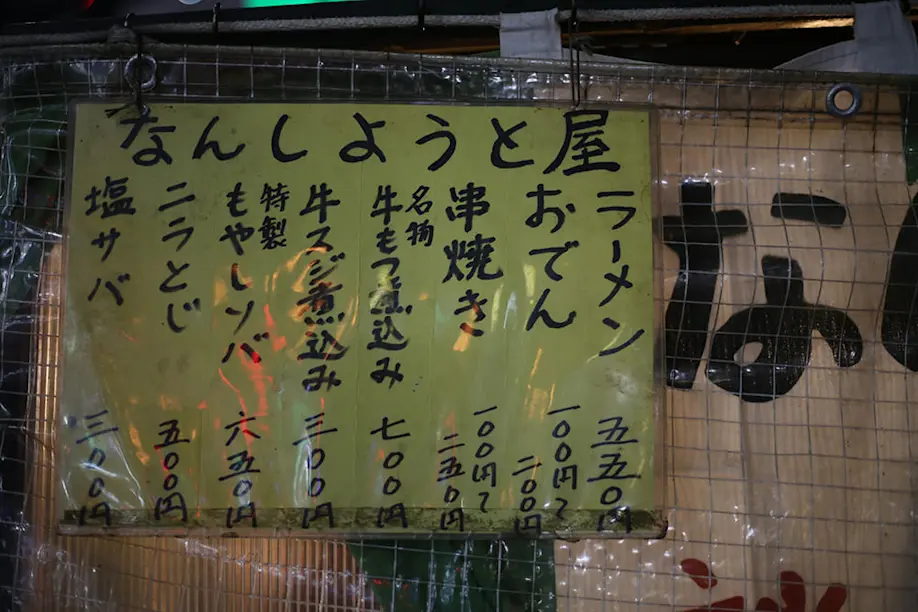 なんしようと屋
ラーメン 五五〇円
おでん 一〇〇円〜二〇〇円
串焼き 一〇〇円〜二五〇円
名物 牛もつ煮込み 七〇〇円
牛スジ煮込み 三〇〇円
特製 もやしソバ 六五〇円
ニラとじ 五〇〇円
塩サバ 三〇〇円
な